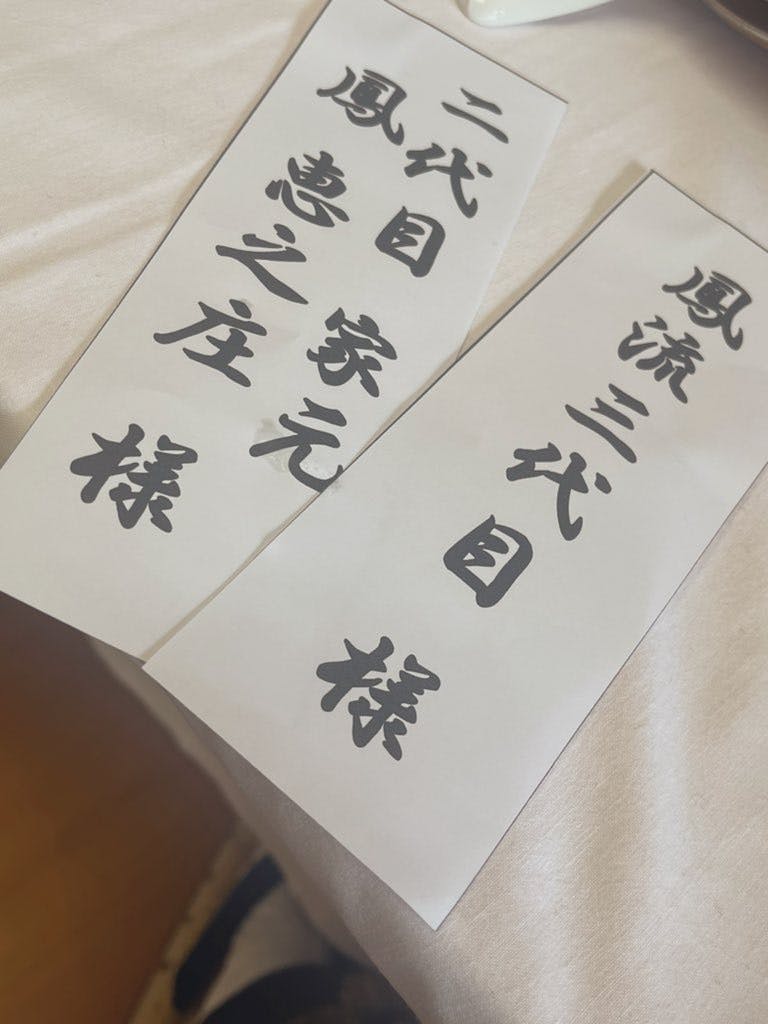 二代目 家元
鳳 恵之庄 様
鳳流三代目 様